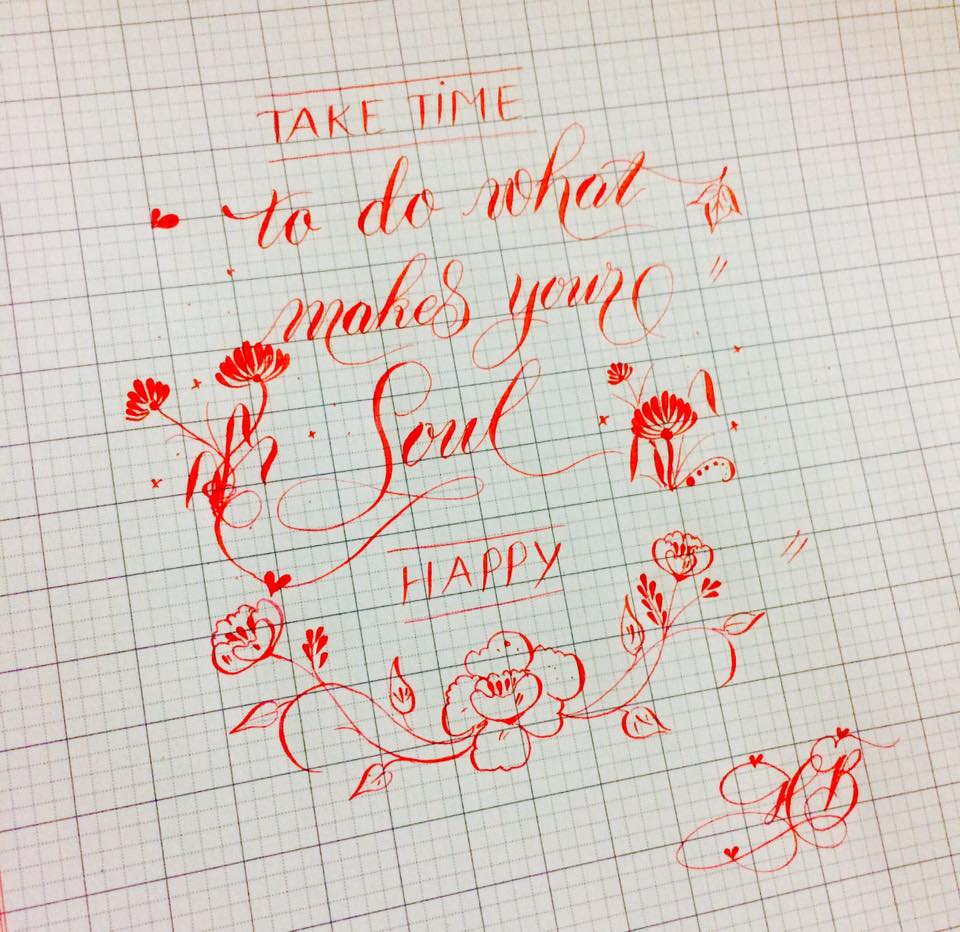 TAKE TiME
to do what
makes your
Soul
HAPPY
HB